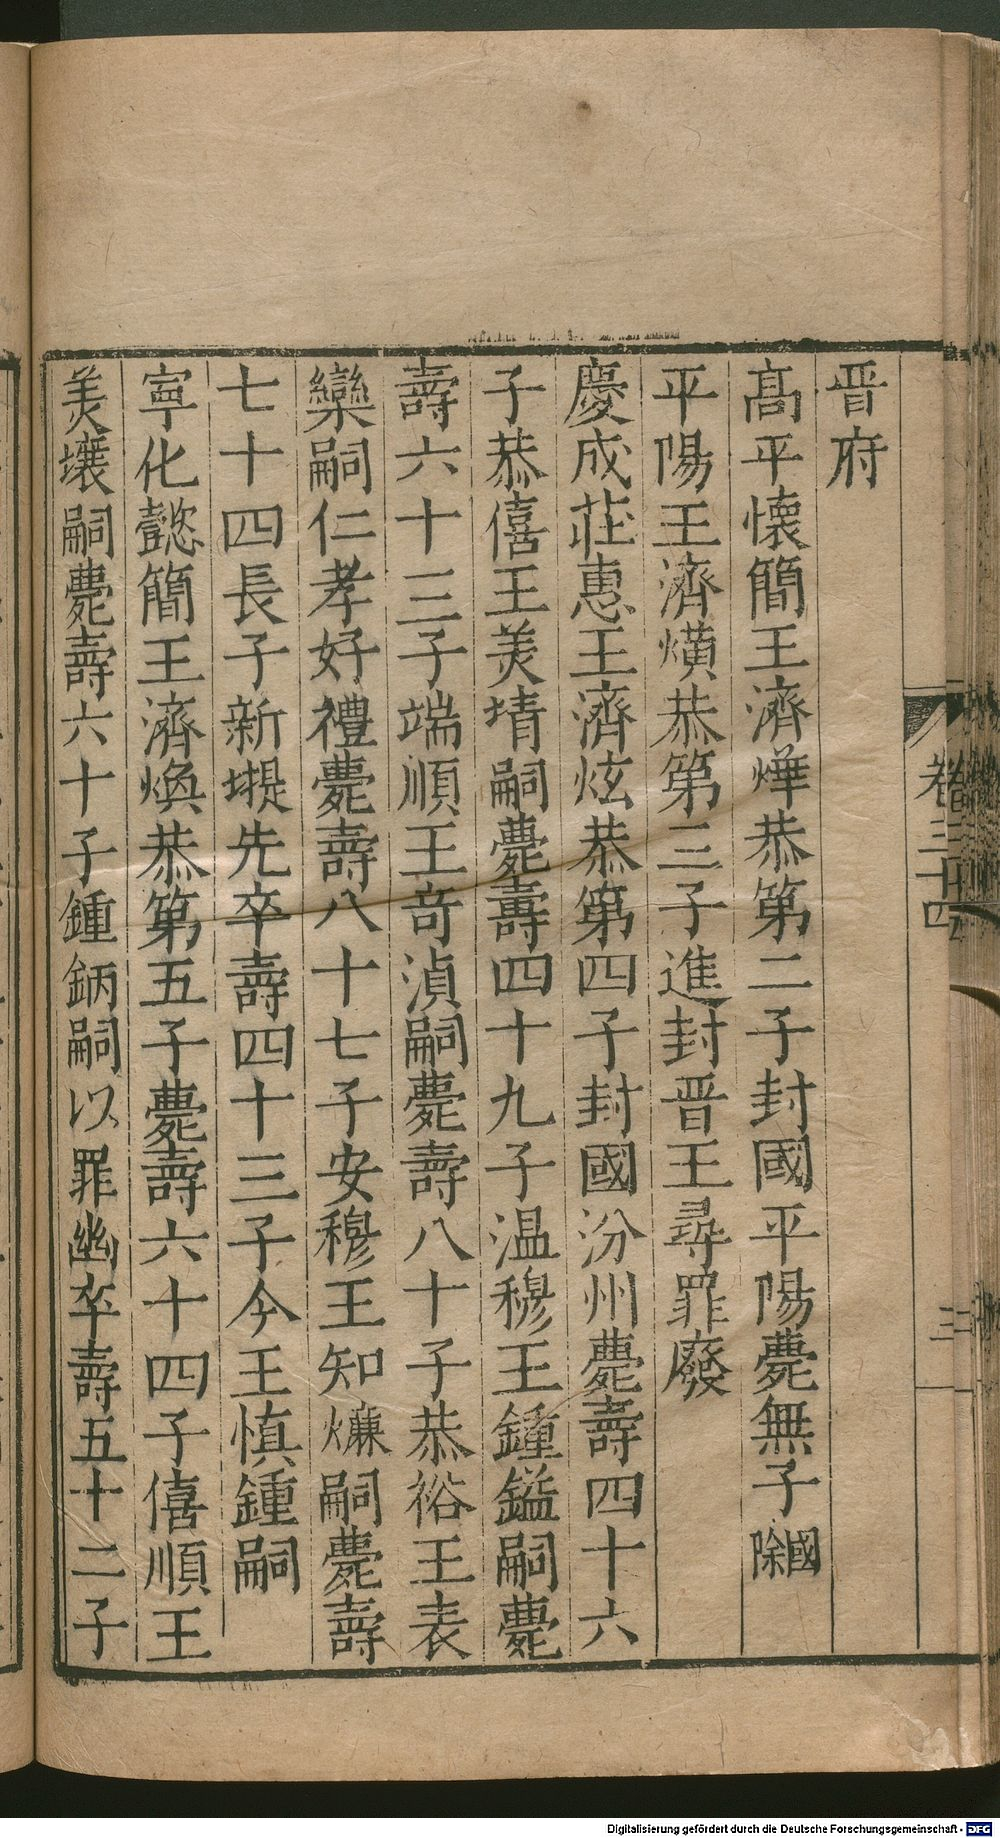 卷三十四
三
晋府
髙平懷簡王濟燁恭第二子封國平陽薨無子國除
平陽王濟熿恭第三子進封晋王尋罪廢
慶成莊惠王濟炫恭第四子封國汾州薨壽四十六
子恭僖王美堉嗣薨壽四十九子温穆王鍾鎰嗣薨
壽六十三子端順王竒湞嗣薨壽八十子恭裕王表
欒嗣仁孝好禮薨壽八十七子安穆王知㷰嗣薨壽
七十四長子新堤先卒壽四十三子今王慎鍾嗣
寧化懿簡王濟煥恭第五子薨壽六十四子僖順王
美壤嗣薨壽六十子鍾鈵嗣以罪幽卒壽五十二子
Digitalisierung gefördert durch die Deutsche Forschungsgemeinschaft - DFG